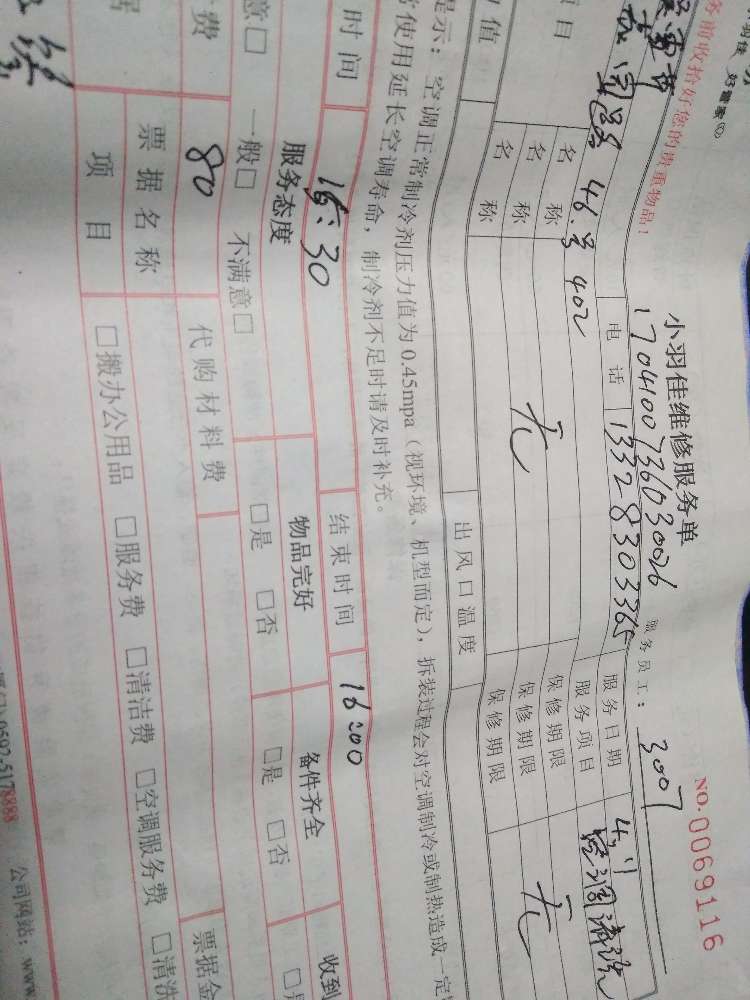 务前收拾好您的贵重物品！
小羽佳维修服务单
NO.0069116
1704100736030026
服务员工：3007
46号402
电话
13328303365
服务日期
项目
服务项目
空调清洗
名称
无
保修期限
无
名称
保修期限
名称
保修期限
值
出风口温度
提示：空调正常制冷剂压力值为0.45mpa（视环境、机型而定），拆装过程会对空调制冷或制热造成一定
使用延长空调寿命，制冷剂不足时请及时补充。
时间
15:30
结束时间
16:00
服务态度
物品完好
备件齐全
收到
意□ 一般□ 不满意□
□是 □否
□是 □否
费
80
代购材料费
票据金
票据名称
项目
□搬办公用品 □服务费 □清洁费 □空调服务费 □清洗
0592-5178888
公司网站：www.